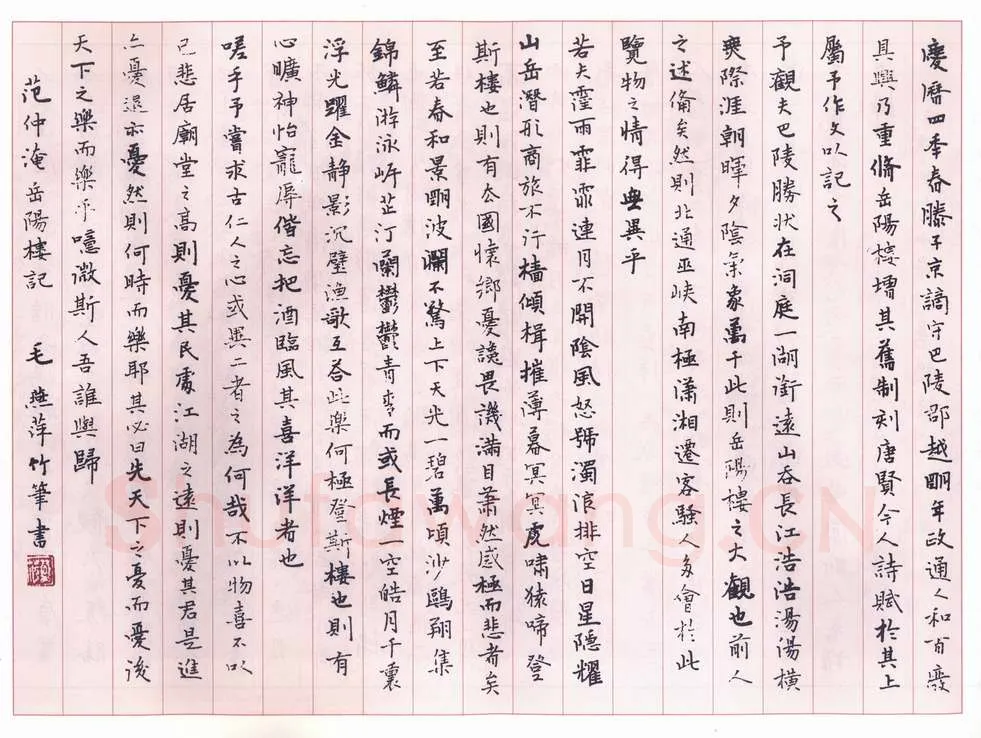 慶曆四年春滕子京謫守巴陵郡越朙年政通人和百廢
具興乃重脩岳陽樓增其舊制刻唐賢今人詩賦於其上
屬予作文以記之
予觀夫巴陵勝狀在洞庭一湖銜遠山吞長江浩浩湯湯橫
無際涯朝暉夕陰氣象萬千此則岳陽樓之大觀也前人
之述備矣然則北通巫峽南極潇湘遷客騷人多會於此
覽物之情得無異乎
若夫霪雨霏霏連月不開陰風怒號濁浪排空日星隱耀
山岳潛形商旅不行檣傾楫摧薄暮冥冥虎嘯猿啼登
斯樓也則有去國懷鄉憂讒畏譏滿目蕭然感極而悲者矣
至若春和景朙波瀾不驚上下天光一碧萬頃沙鷗翔集
錦鱗游泳岸芷汀蘭鬱鬱青青而或長煙一空皓月千里
浮光躍金静影沉璧漁歌互答此樂何極登斯樓也則有
心曠神怡寵辱偕忘把酒臨風其喜洋洋者也
嗟乎予嘗求古仁人之心或異二者之為何哉不以物喜不以
己悲居廟堂之高則憂其民處江湖之遠則憂其君是進
亦憂退亦憂然則何時而樂耶其必曰先天下之憂而憂後
天下之樂而樂乎噫微斯人吾誰與歸
范仲淹岳陽樓記 毛燕萍竹筆書
Shufawang.CN